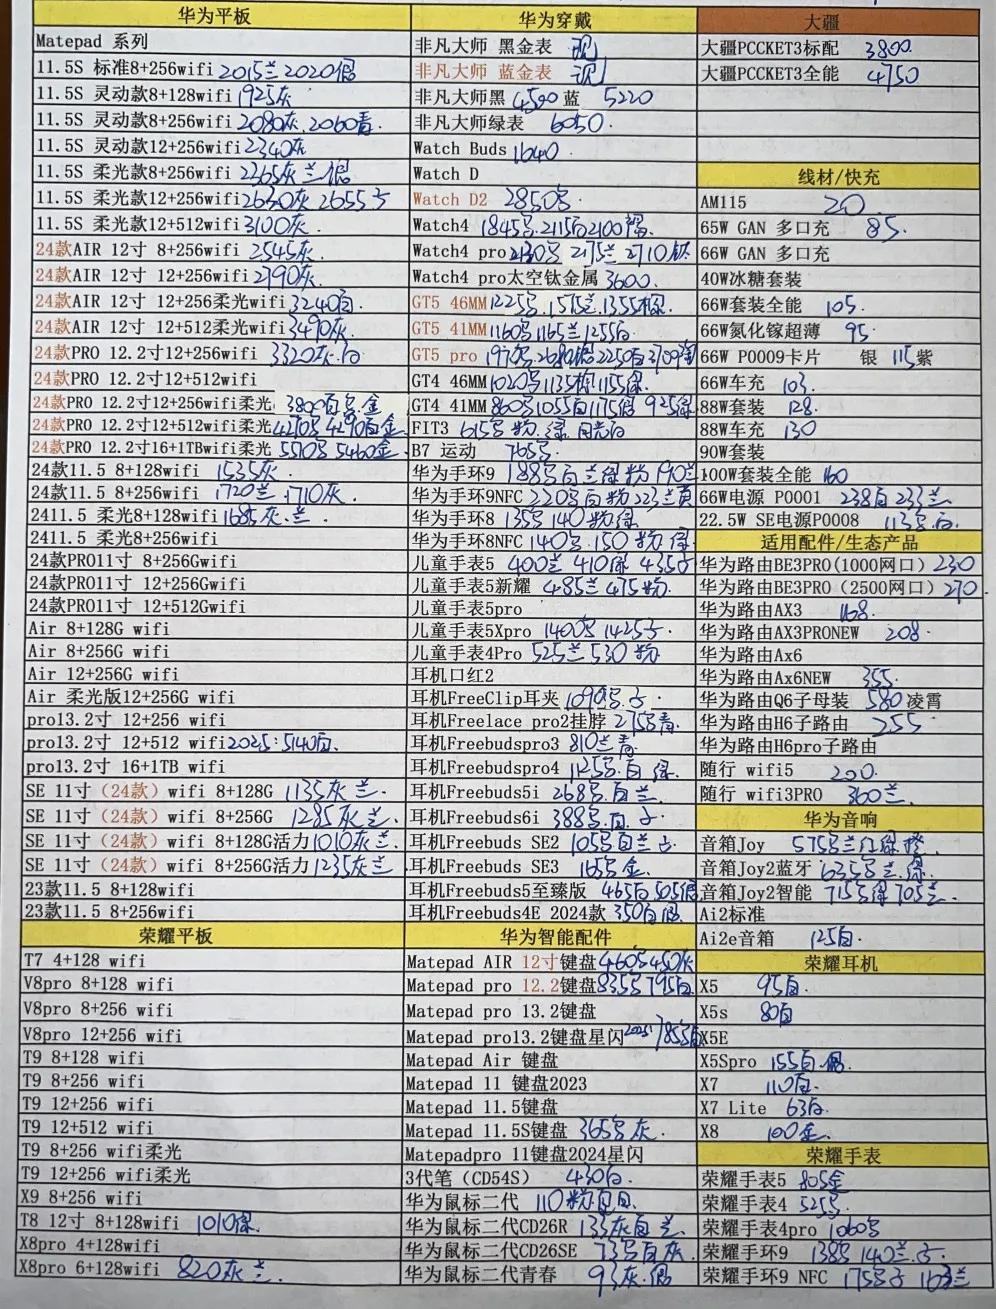 华为平板
Matepad 系列
11.5S 标准8+256wifi 2015兰 2020
11.5S 灵动款8+128wifi 1925灰
11.5S 灵动款8+256wifi 2080灰 2060青
11.5S 灵动款12+256wifi 2340灰
11.5S 柔光款8+256wifi 2265灰 兰
11.5S 柔光款12+256wifi 2630灰 2655
11.5S 柔光款12+512wifi 3100灰
24款AIR 12寸 8+256wifi 2545灰
24款AIR 12寸 12+256wifi 2790灰
24款AIR 12寸 12+256柔光wifi 3240白
24款AIR 12寸 12+512柔光wifi 3490灰
24款PRO 12.2寸12+256wifi 3320灰.白
24款PRO 12.2寸12+512wifi
24款PRO 12.2寸12+256wifi柔光 3800白 金
24款PRO 12.2寸12+512wifi柔光 4270 4290白金
24款PRO 12.2寸16+1TBwifi柔光 5510 5460金
24款11.5 8+128wifi 1535灰
24款11.5 8+256wifi 1720兰 1710灰
2411.5 柔光8+128wifi 1685灰.兰
2411.5 柔光8+256wifi
24款PRO11寸 8+256Gwifi
24款PRO11寸 12+256Gwifi
24款PRO11寸 12+512Gwifi
Air 8+128G wifi
Air 8+256G wifi
Air 12+256G wifi
Air 柔光版12+256G wifi
pro13.2寸 12+256 wifi
pro13.2寸 12+512 wifi 2025:5140白
pro13.2寸 16+1TB wifi
SE 11寸（24款）wifi 8+128G 1135灰 兰
SE 11寸（24款）wifi 8+256G 1285灰 兰
SE 11寸（24款）wifi 8+128G活力 1010灰 兰
SE 11寸（24款）wifi 8+256G活力 1235灰兰
23款11.5 8+128wifi
23款11.5 8+256wifi
荣耀平板
T7 4+128 wifi
V8pro 8+128 wifi
V8pro 8+256 wifi
V8pro 12+256 wifi
T9 8+128 wifi
T9 8+256 wifi
T9 12+256 wifi
T9 12+512 wifi
T9 8+256 wifi柔光
T9 12+256 wifi柔光
X9 8+256 wifi
T8 12寸 8+128wifi 1010绿
X8pro 4+128wifi
X8pro 6+128wifi 820灰 兰
华为穿戴
非凡大师 黑金表 现
非凡大师 蓝金表 现
非凡大师黑 4590 蓝 5220
非凡大师绿表 6050
Watch Buds 1640
Watch D
Watch D2 2850
Watch4 1845 2115白2100
Watch4 pro 2130 2175兰 2710钛
Watch4 pro太空钛金属 3600
GT5 46MM 1225 1575兰 1355
GT5 41MM 1160 1165兰 1255白
GT5 pro 1970 2250白
GT4 46MM 1020 1135棕 1155绿
GT4 41MM 860 1055白 1175 925绿
FIT3 615 粉 绿 月光白
B7 运动 765
华为手环9 188 白 兰 绿 粉 190兰
华为手环9NFC 220 白 粉 223兰黄
华为手环8 135 140 粉绿
华为手环8NFC 140 150 粉 绿
儿童手表5 400兰 410绿 435
儿童手表5新耀 485兰 475粉
儿童手表5pro
儿童手表5Xpro 1400 1425
儿童手表4Pro 525兰 530 粉
耳机口红2
耳机FreeClip耳夹 1090
耳机Freelace pro2挂脖 275 青
耳机Freebudspro3 810兰青
耳机Freebudspro4 1125 白 绿
耳机Freebuds5i 268 白 兰
耳机Freebuds6i 388 白
耳机Freebuds SE2 105 白兰
耳机Freebuds SE3 165 金
耳机Freebuds5至臻版 465白 505
耳机Freebuds4E 2024款 350白
华为智能配件
Matepad AIR 12寸键盘 460 450灰
Matepad pro 12.2键盘 835 795白
Matepad pro 13.2键盘
Matepad pro13.2键盘星闪 2025: 785
Matepad Air 键盘
Matepad 11 键盘2023
Matepad 11.5键盘
Matepad 11.5S键盘 365 灰
Matepadpro 11键盘2024星闪
3代笔（CD54S） 430白
华为鼠标二代 110粉
华为鼠标二代CD26R 133灰白 兰
华为鼠标二代CD26SE 73 白灰
华为鼠标二代青春 93灰
大疆
大疆PCCKET3标配 3800
大疆PCCKET3全能 4750
线材/快充
AM115 20
65W GAN 多口充 85
66W GAN 多口充
40W冰糖套装
66W套装全能 105
66W氮化镓超薄 95
66W P0009卡片 银 115紫
66W车充 103
88W套装 128
88W车充 130
90W套装
100W套装全能 160
66W电源 P0001 238白 233兰
22.5W SE电源P0008 113 白
适用配件/生态产品
华为路由BE3PRO(1000网口) 230
华为路由BE3PRO（2500网口）270
华为路由AX3 168
华为路由AX3PRONEW 208
华为路由Ax6
华为路由Ax6NEW 355
华为路由Q6子母装 580 凌霄
华为路由H6子路由 255
华为路由H6pro子路由
随行 wifi5 200
随行 wifi3PRO 360兰
华为音响
音箱Joy 575 兰红绿橙
音箱Joy2蓝牙 635 兰.绿
音箱Joy2智能 715 绿 705兰
Ai2标准
Ai2e音箱 125白
荣耀耳机
X5 95白
X5s 80白
X5E
X5Spro 155白
X7 110白
X7 Lite 63白
X8 100金
荣耀手表
荣耀手表5 805金
荣耀手表4 525
荣耀手表4pro 1060
荣耀手环9 138 140兰
荣耀手环9 NFC 175 163兰